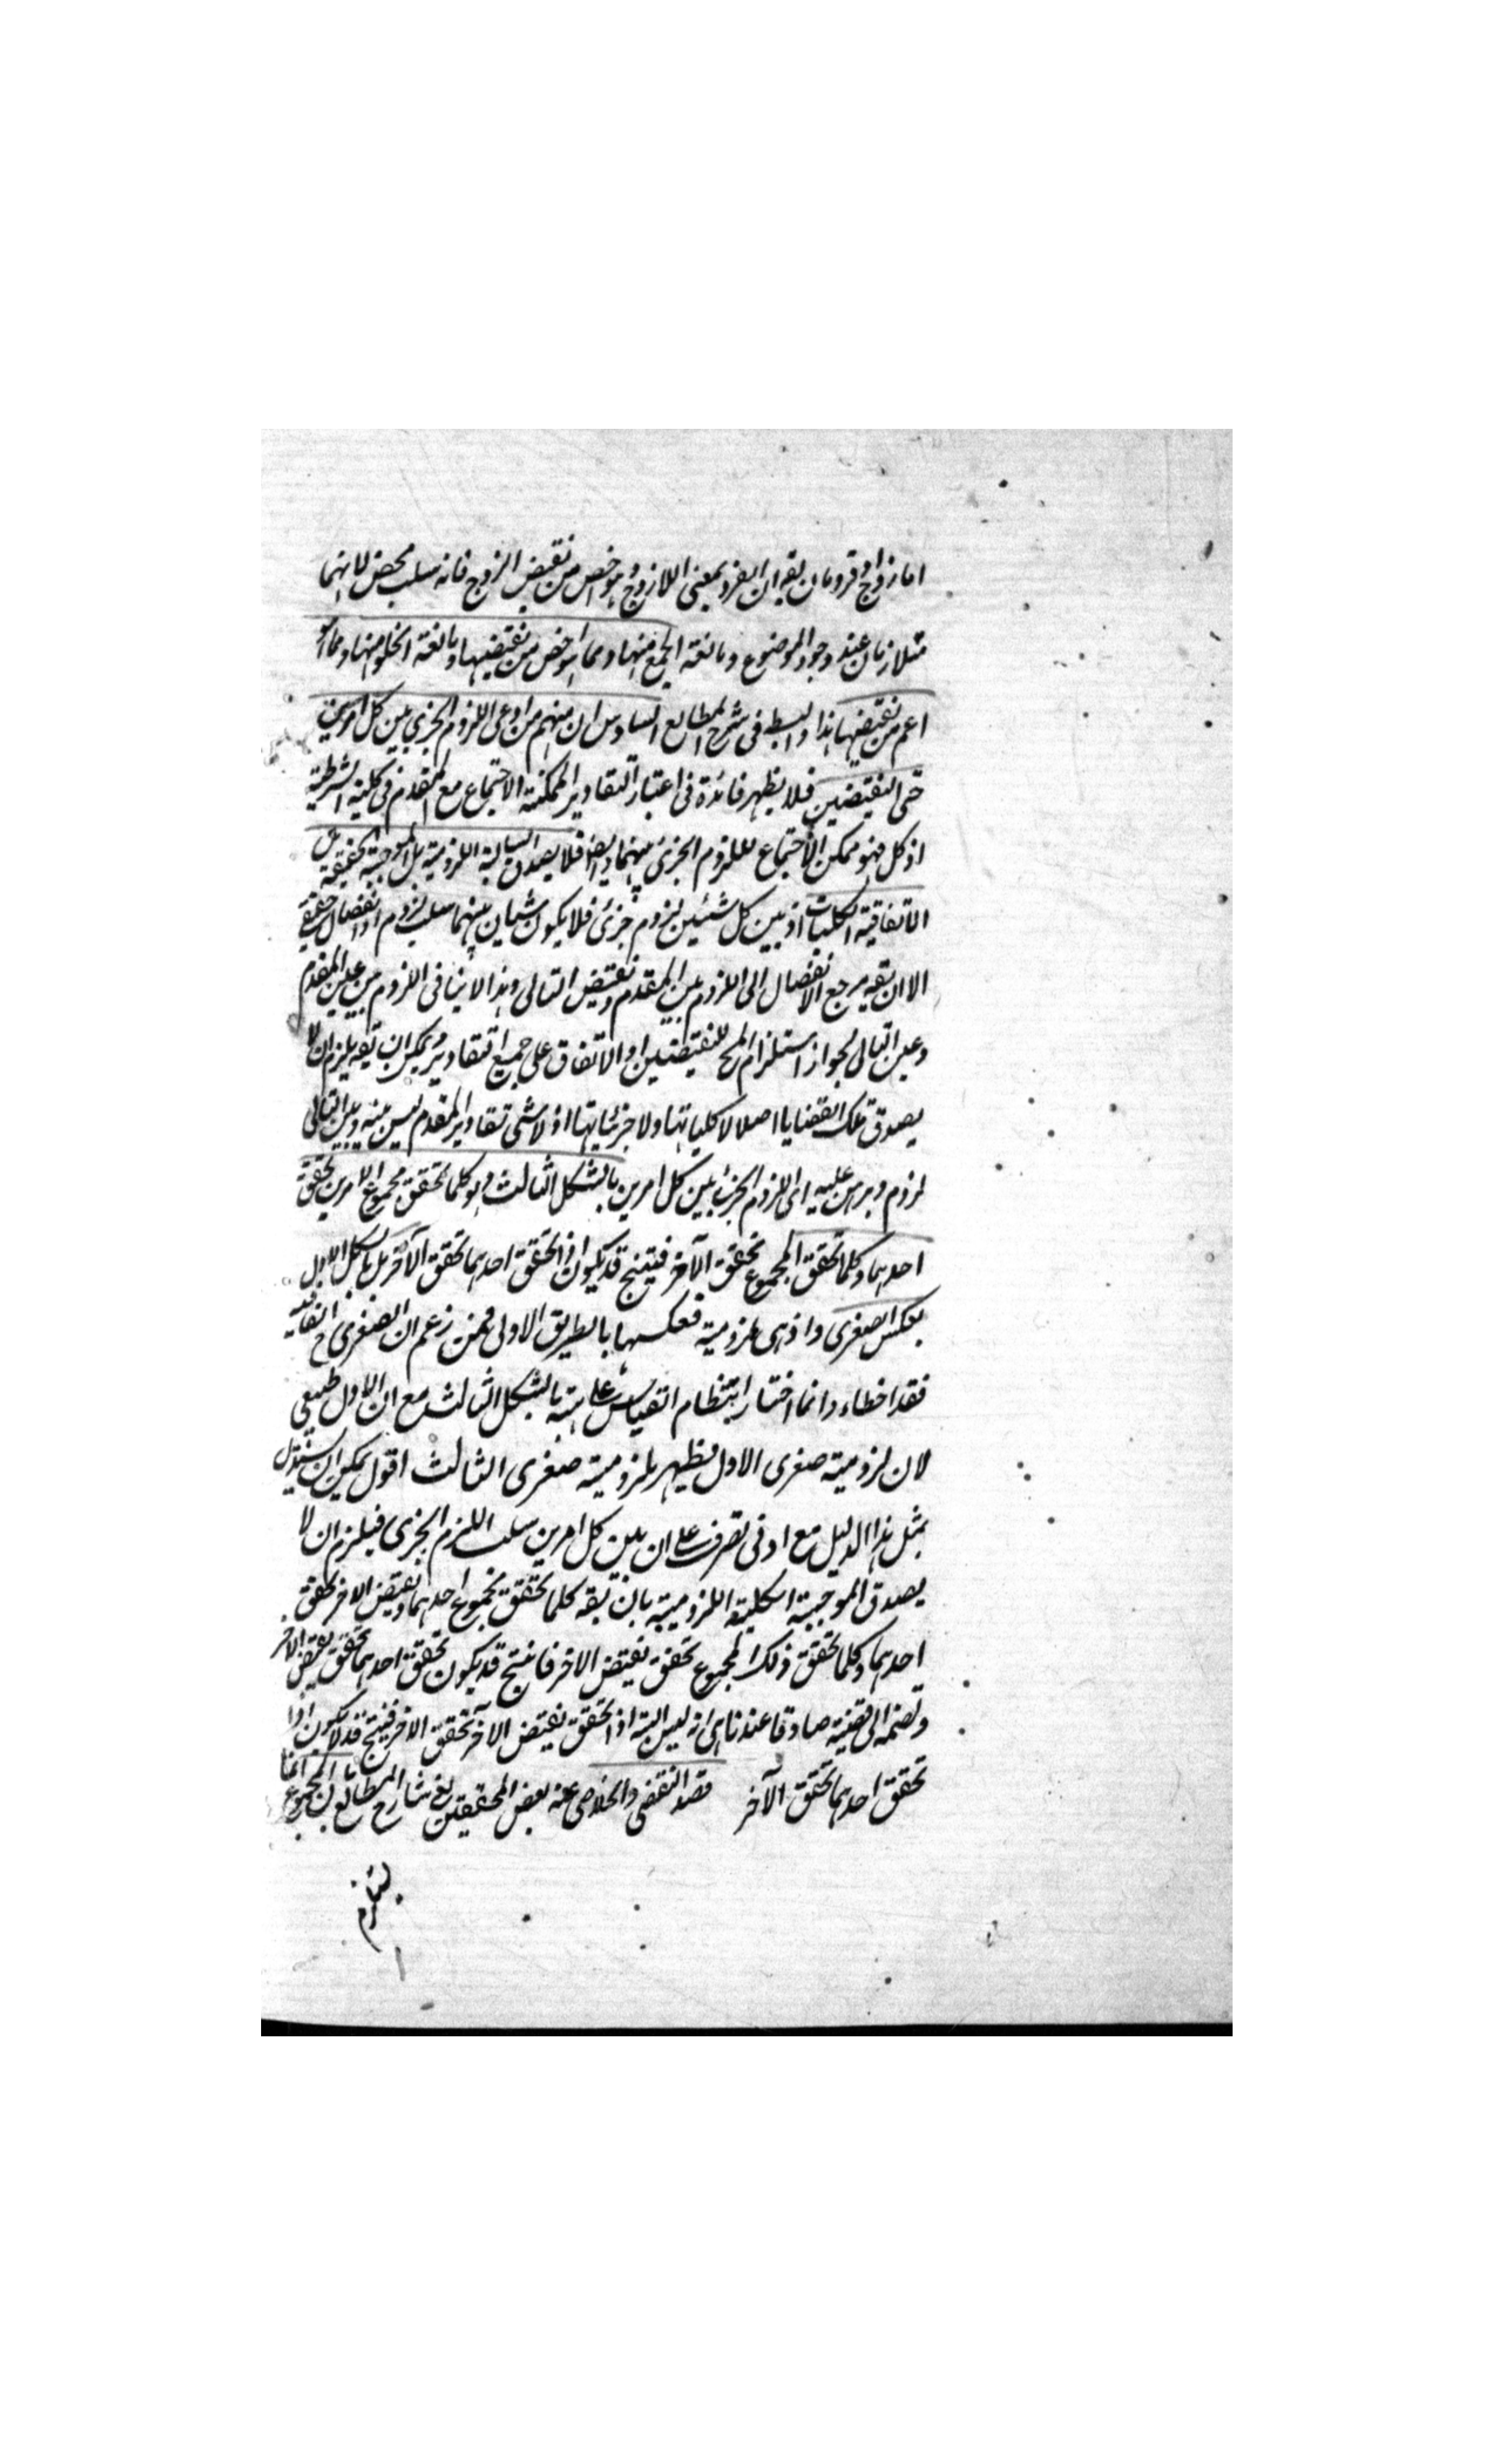 اما زوج او فرد بان يقه ان الفرد بمعنى اللازوج وهو اخص من نقيض الزوج فانه سلب محض لانهما
متلازمان عند وجود الموضوع ومانعة الجمع منها ومما هو اخص من نقيضها ومانعة الخلو منها ومما هو
اعم من نقيضها هذا والبسط فى شرح المطالع السادس ان منهم من ادعى اللزوم الجزئى بين كل امرين
حتى النقيضين فلا يظهر فائدة فى اعتبار التقادير الممكنة الاجتماع مع المقدم فى كلية الشرطية
اذ كل فهو ممكن الاجتماع للزوم الجزئ بينهما وايضا فلا يصدق السالبة اللزومية بل الموجبة الحقيقية بل
الاتفاقية الكليات اذ بين كل شيئين لزوم جزئى فلا يكون شيأن بينهما سلب لزوم او انفصال حقيقى
الا ان يقه مرجع الانفصال الى اللزوم بين المقدم ونقيض التالى وهذا لا ينافى اللزوم بين عين المقدم
وعين التالى لجواز استلزام المح للنقيضين او الاتفاق على جميع التقادير ويمكن ان يقه يلزم ان لا
يصدق تلك القضايا اصلا لا كلياتها ولا جزئياتها اذ لا شئ تقادير المقدم ليس بينه وبين التالى
لزوم وبرهن عليه اى اللزوم الجزئ بين كل امرين بالشكل الثالث وهو كلما تحقق مجموع الامرين تحقق
احدهما وكلما تحقق المجموع تحقق الآخر فينتج قد يكون اذا تحقق احدهما تحقق الآخر بل بالشكل الاول
بعكس الصغرى واذ هى لزومية فعكسها بالطريق الاولى فمن زعم ان الصغرى ح اتفاقية
فقد اخطاء وانما اختار انتظام القياس على هيئة بالشكل الثالث مع ان الاول طبيعى
لان لزومية صغرى الاول يظهر بلزومية صغرى الثالث اقول يمكن ان يستدل
بمثل هذا الدليل مع ادنى تصرف على ان بين كل امرين سلب اللزم الجزى فيلزم ان لا
يصدق الموجبة الكلية اللزومية بان يقه كلما تحقق مجموع احدهما ونقيض الاخر تحقق
احدهما وكلما تحقق ذلك المجموع تحقق نقيض الاخر فانتج قد يكون تحقق احدهما تحقق نقيض الاخر
ونضمه الى قضية صادقا عندنا هى انه ليس البتة اذا تحقق نقيض الآخر تحقق الاخر فينتج قد لا يكون اذا
تحقق احدهما تحقق الآخر قصد النقضى والخلاصى عنه بعض المحققين يعنى شارح المطالع بان المجموع انما
يستلزم